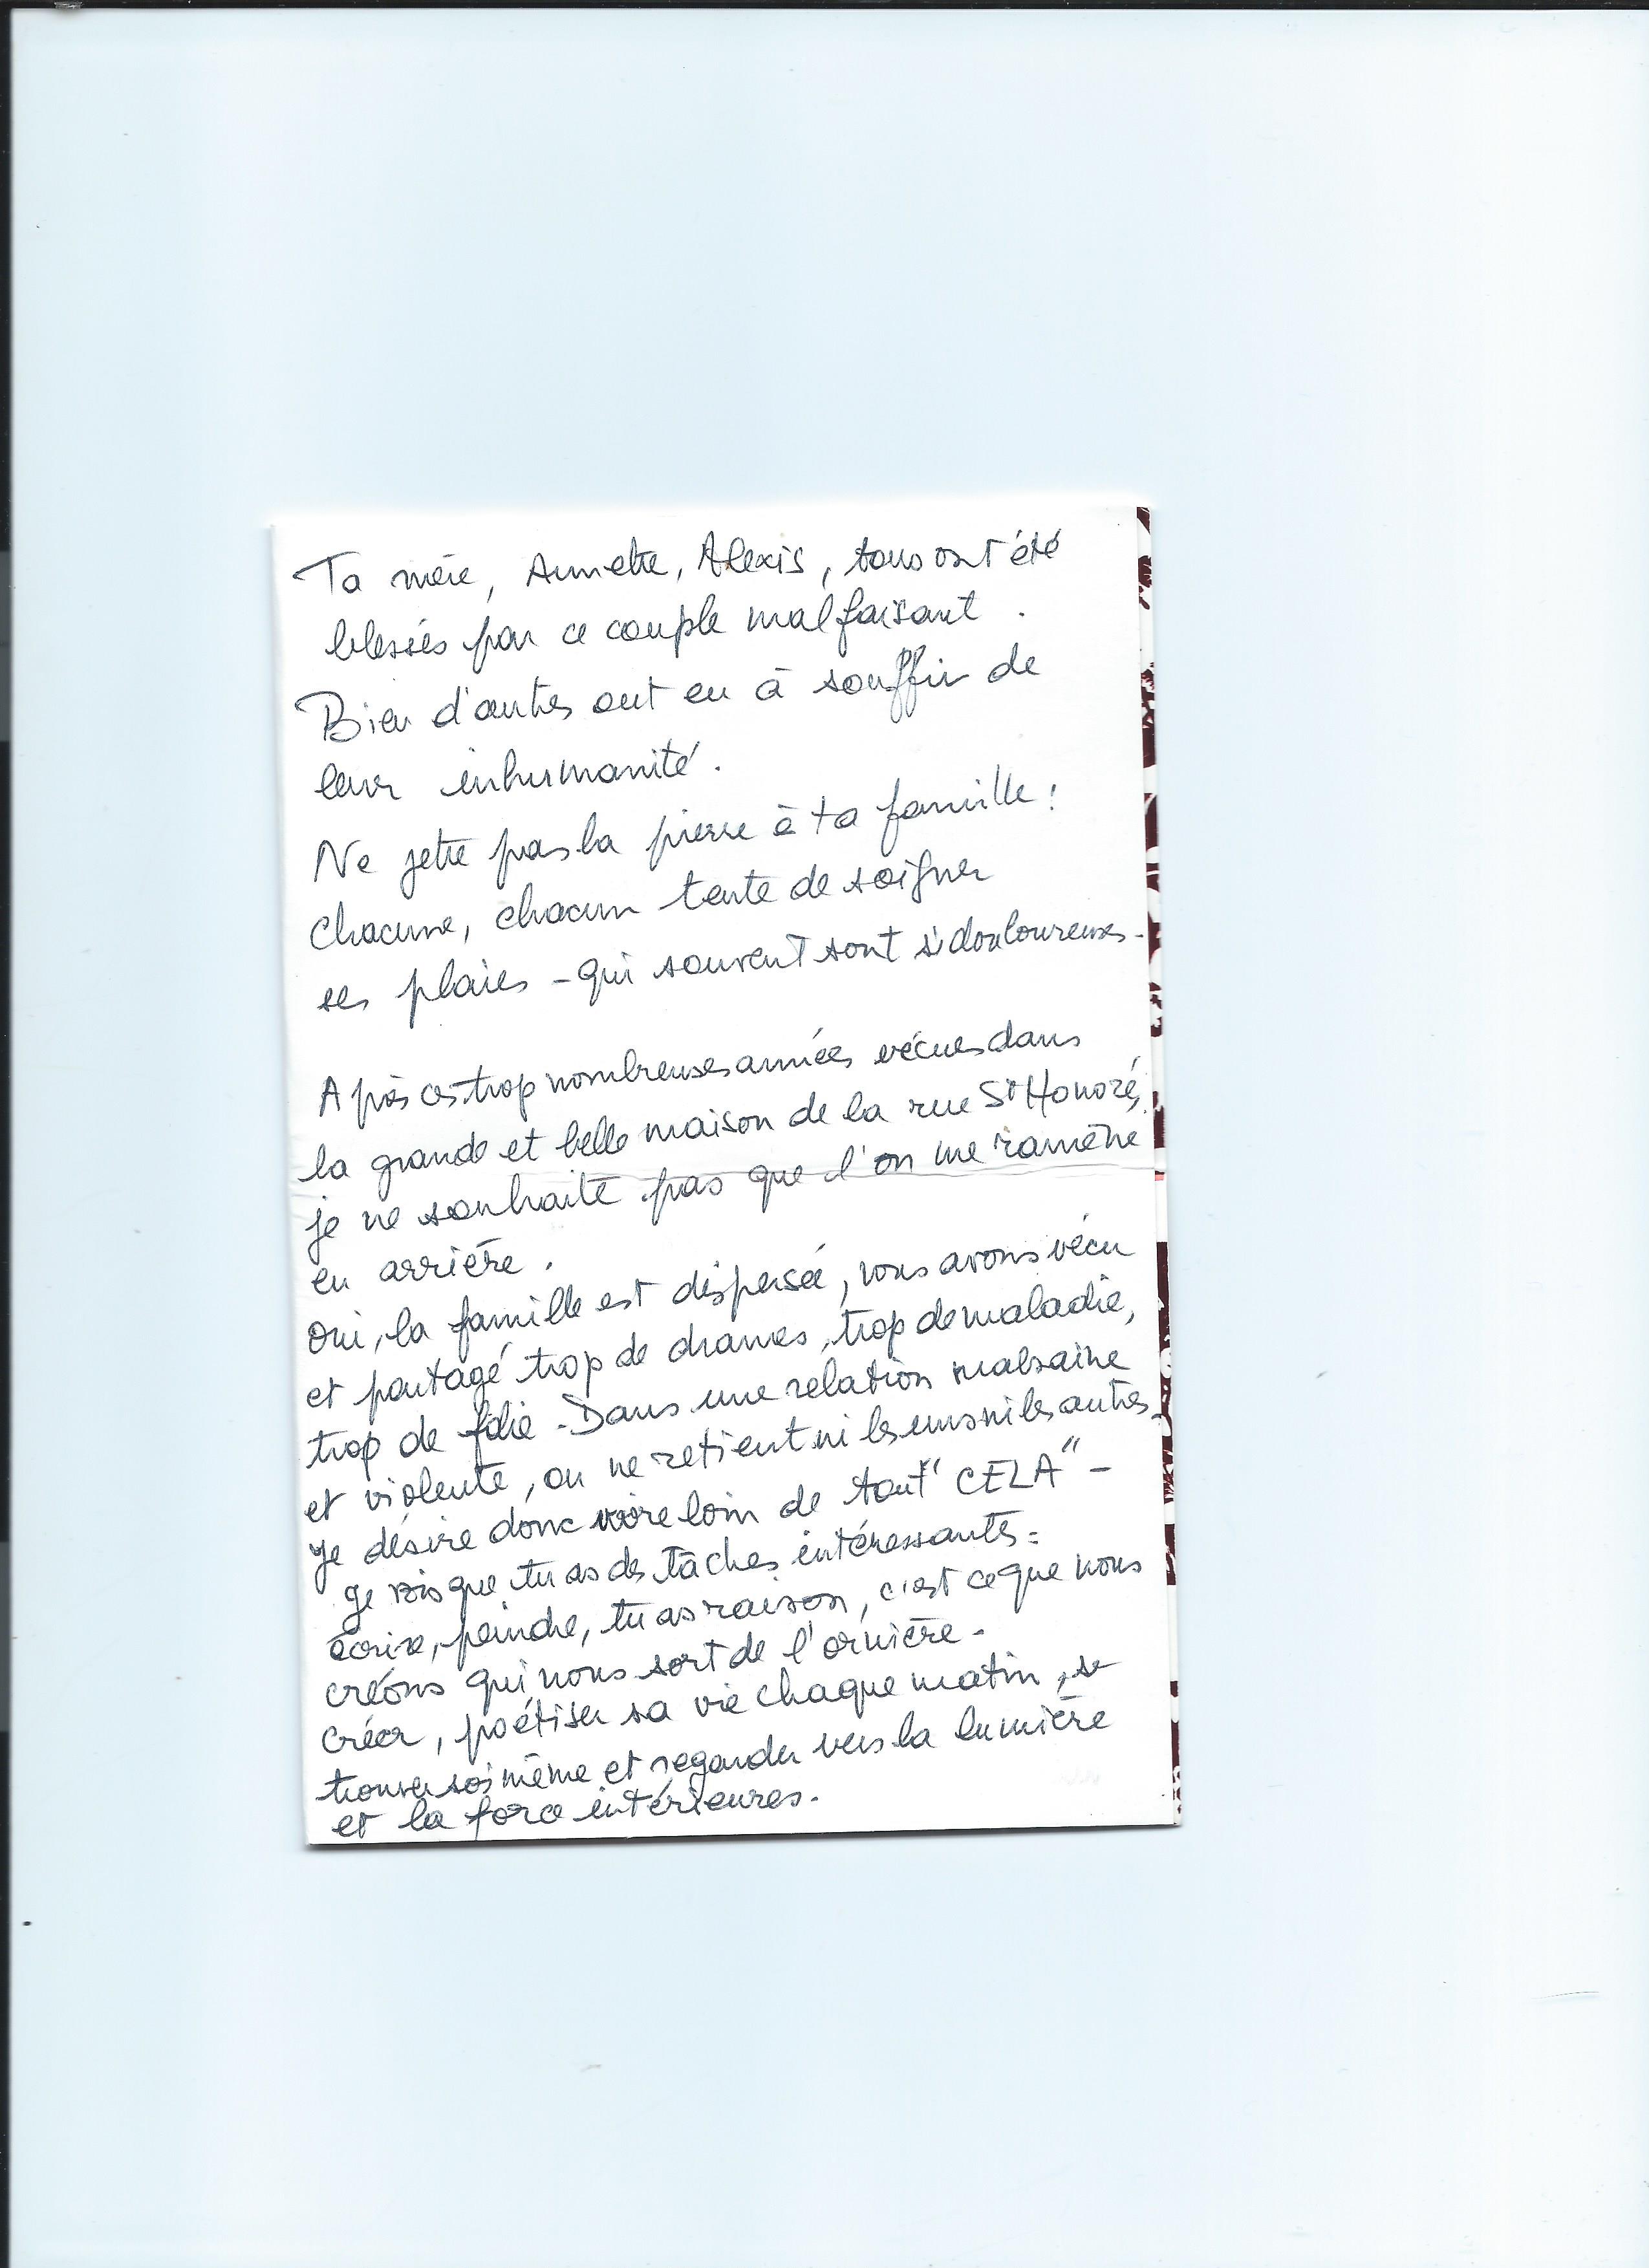 Ta mère, Annette, Alexis, tous ont été
blessés par ce couple malfaisant.
Bien d'autres ont eu à souffrir de
leur inhumanité.
Ne jette pas la pierre à ta famille :
chacune, chacun tente de soigner
ses plaies - qui souvent sont si douloureuses -
Après ces trop nombreuses années vécues dans
la grande et belle maison de la rue St Honoré,
je ne souhaite pas que l'on me ramène
en arrière.
Oui, la famille est dispersée, nous avons vécu
et partagé trop de drames, trop de maladie,
trop de folie - Dans une relation malsaine
et violente, on ne retient ni les uns ni les autres -
Je désire donc vivre loin de tout "CELA" -
Je vois que tu as des tâches intéressantes :
écrire, peindre, tu as raison, c'est ce que nous
créons qui nous sort de l'ornière -
Créer, poétiser sa vie chaque matin, se
trouver soi même et regarder vers la lumière
et la force intérieures.